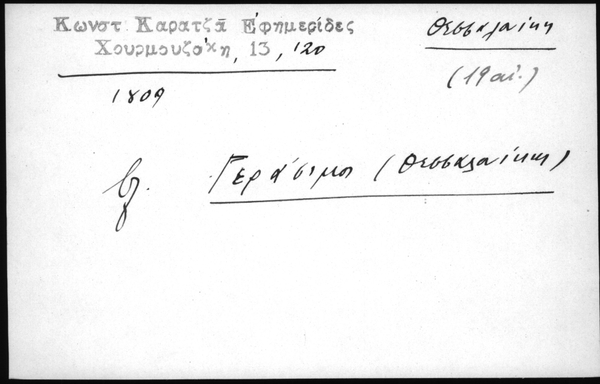 Κωνστ Καρατζᾶ Ἐφημερίδες
Χουρμουζάκη, 13, 120
Θεσσαλονίκη
(19 αἰ.)
1809
βλ. Γεράσιμοι (Θεσσαλονίκη)